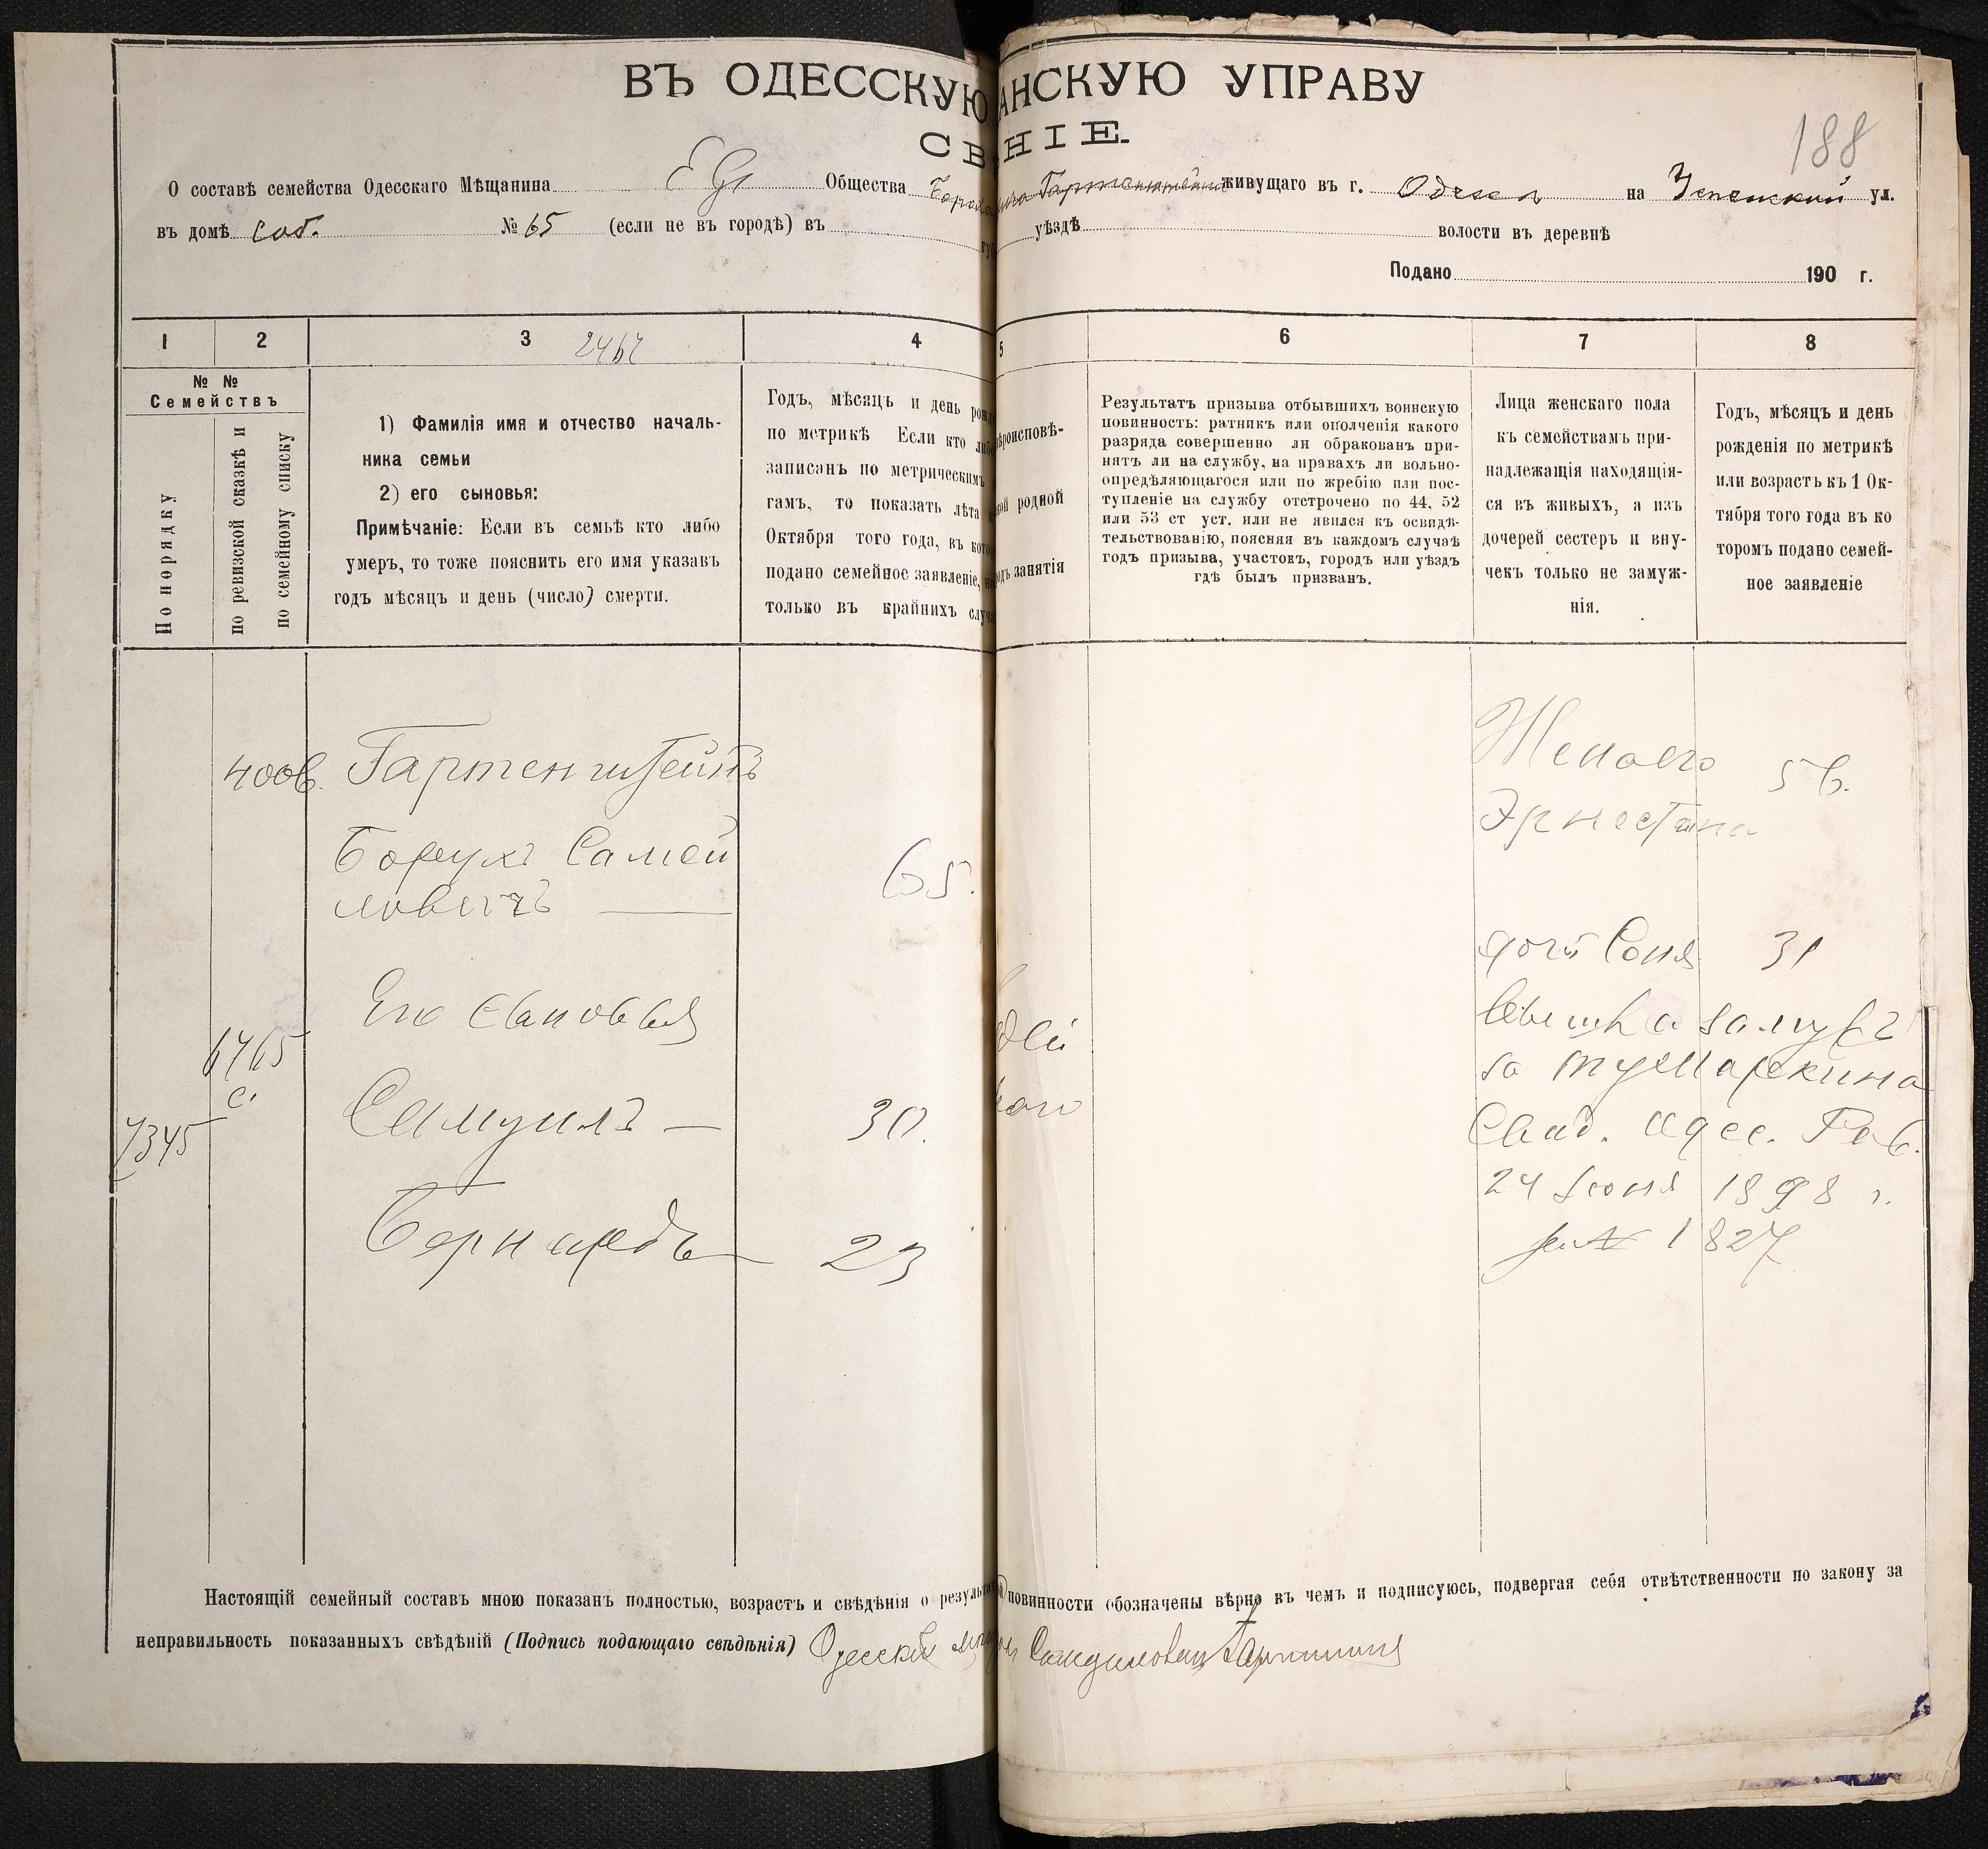 ВЪ ОДЕССКУЮ АНСКУЮ УПРАВУ
СВ НІЕ.
188
О составѣ семейства Одесскаго Мѣщанина Общества живущаго въ г. Одесса на Успенский ул.
въ домѣ соб. № 65 (если не въ городѣ) въ уѣздѣ волости въ деревнѣ
Подано 190 г.
1 2 3 4 5 6 7 8
№ №
Семействъ
По порядку
по ревизской сказкѣ и
по семейному списку
1) Фамилія имя и отчество началь-
ника семьи
2) его сыновья:
Примѣчаніе: Если въ семьѣ кто либо
умеръ, то тоже пояснить его имя указавъ
годъ мѣсяцъ и день (число) смерти.
Годъ, мѣсяцъ и день рожд
по метрикѣ Если кто либо
записанъ по метрическимъ
гамъ, то показать лѣта
Октября того года, въ кото
подано семейное заявленіе, н
только въ крайнихъ случа
ѣроисповѣ-
кой родной
одъ занятія
Результатъ призыва отбывшихъ воинскую
повинность: ратникъ или ополченія какого
разряда совершенно ли обракованъ при-
нятъ ли на службу, на правахъ ли вольно-
опредѣляющагося или по жребію или пос-
тупленіе на службу отстрочено по 44, 52
или 53 ст уст. или не явился къ освидѣ-
тельствованію, поясняя въ каждомъ случаѣ
годъ призыва, участокъ, городъ или уѣздъ
гдѣ былъ призванъ.
Лица женскаго пола
къ семействамъ при-
надлежащія находящія-
ся въ живыхъ, а изъ
дочерей сестеръ и вну-
чекъ только не замуж-
нія.
Годъ, мѣсяцъ и день
рожденія по метрикѣ
или возрастъ къ 1 Ок-
тября того года въ ко
торомъ подано семей-
ное заявленіе
Гартенштейнъ
Борухъ Самой
ловичъ — 65.
Его сыновья
6765
с.
7345
Самуилъ — 30.
Бернардъ — 23
Жена его 56.
Эрнестина
дочь Соня 31
вышла замужъ
за Тумаркина
Свид. Одес. Рав.
24 Іюня 1898 г.
за № 1827
Настоящій семейный составъ мною показанъ полностью, возрастъ и свѣдѣнія о результ повинности обозначены вѣрно въ чемъ и подписуюсь, подвергая себя отвѣтственности по закону за
неправильность показанныхъ свѣдѣній (Подпись подающаго свѣдѣнія) Одесскій